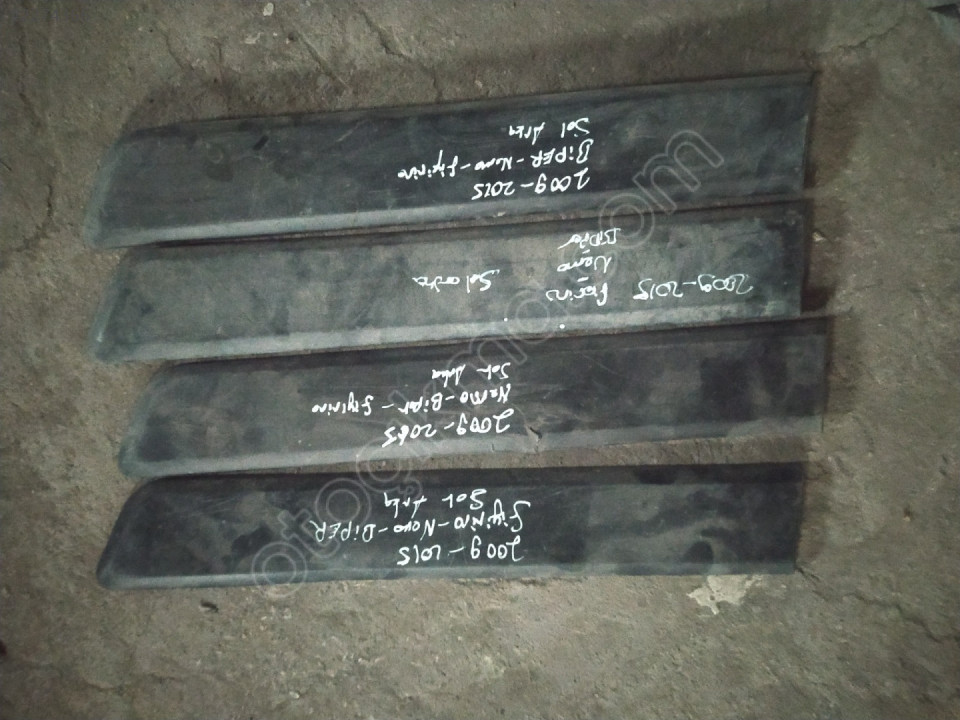 2009-2015
fiyirino-Nemo-BiPER
Sol Arka
2009-2015
Nemo-Biper-fiyirino
Sol Arka
2009-2015 fiorino Sol arka
Nemo
Bipper
2009-2015
BiPER-Nemo-fiyirino
Sol Arka